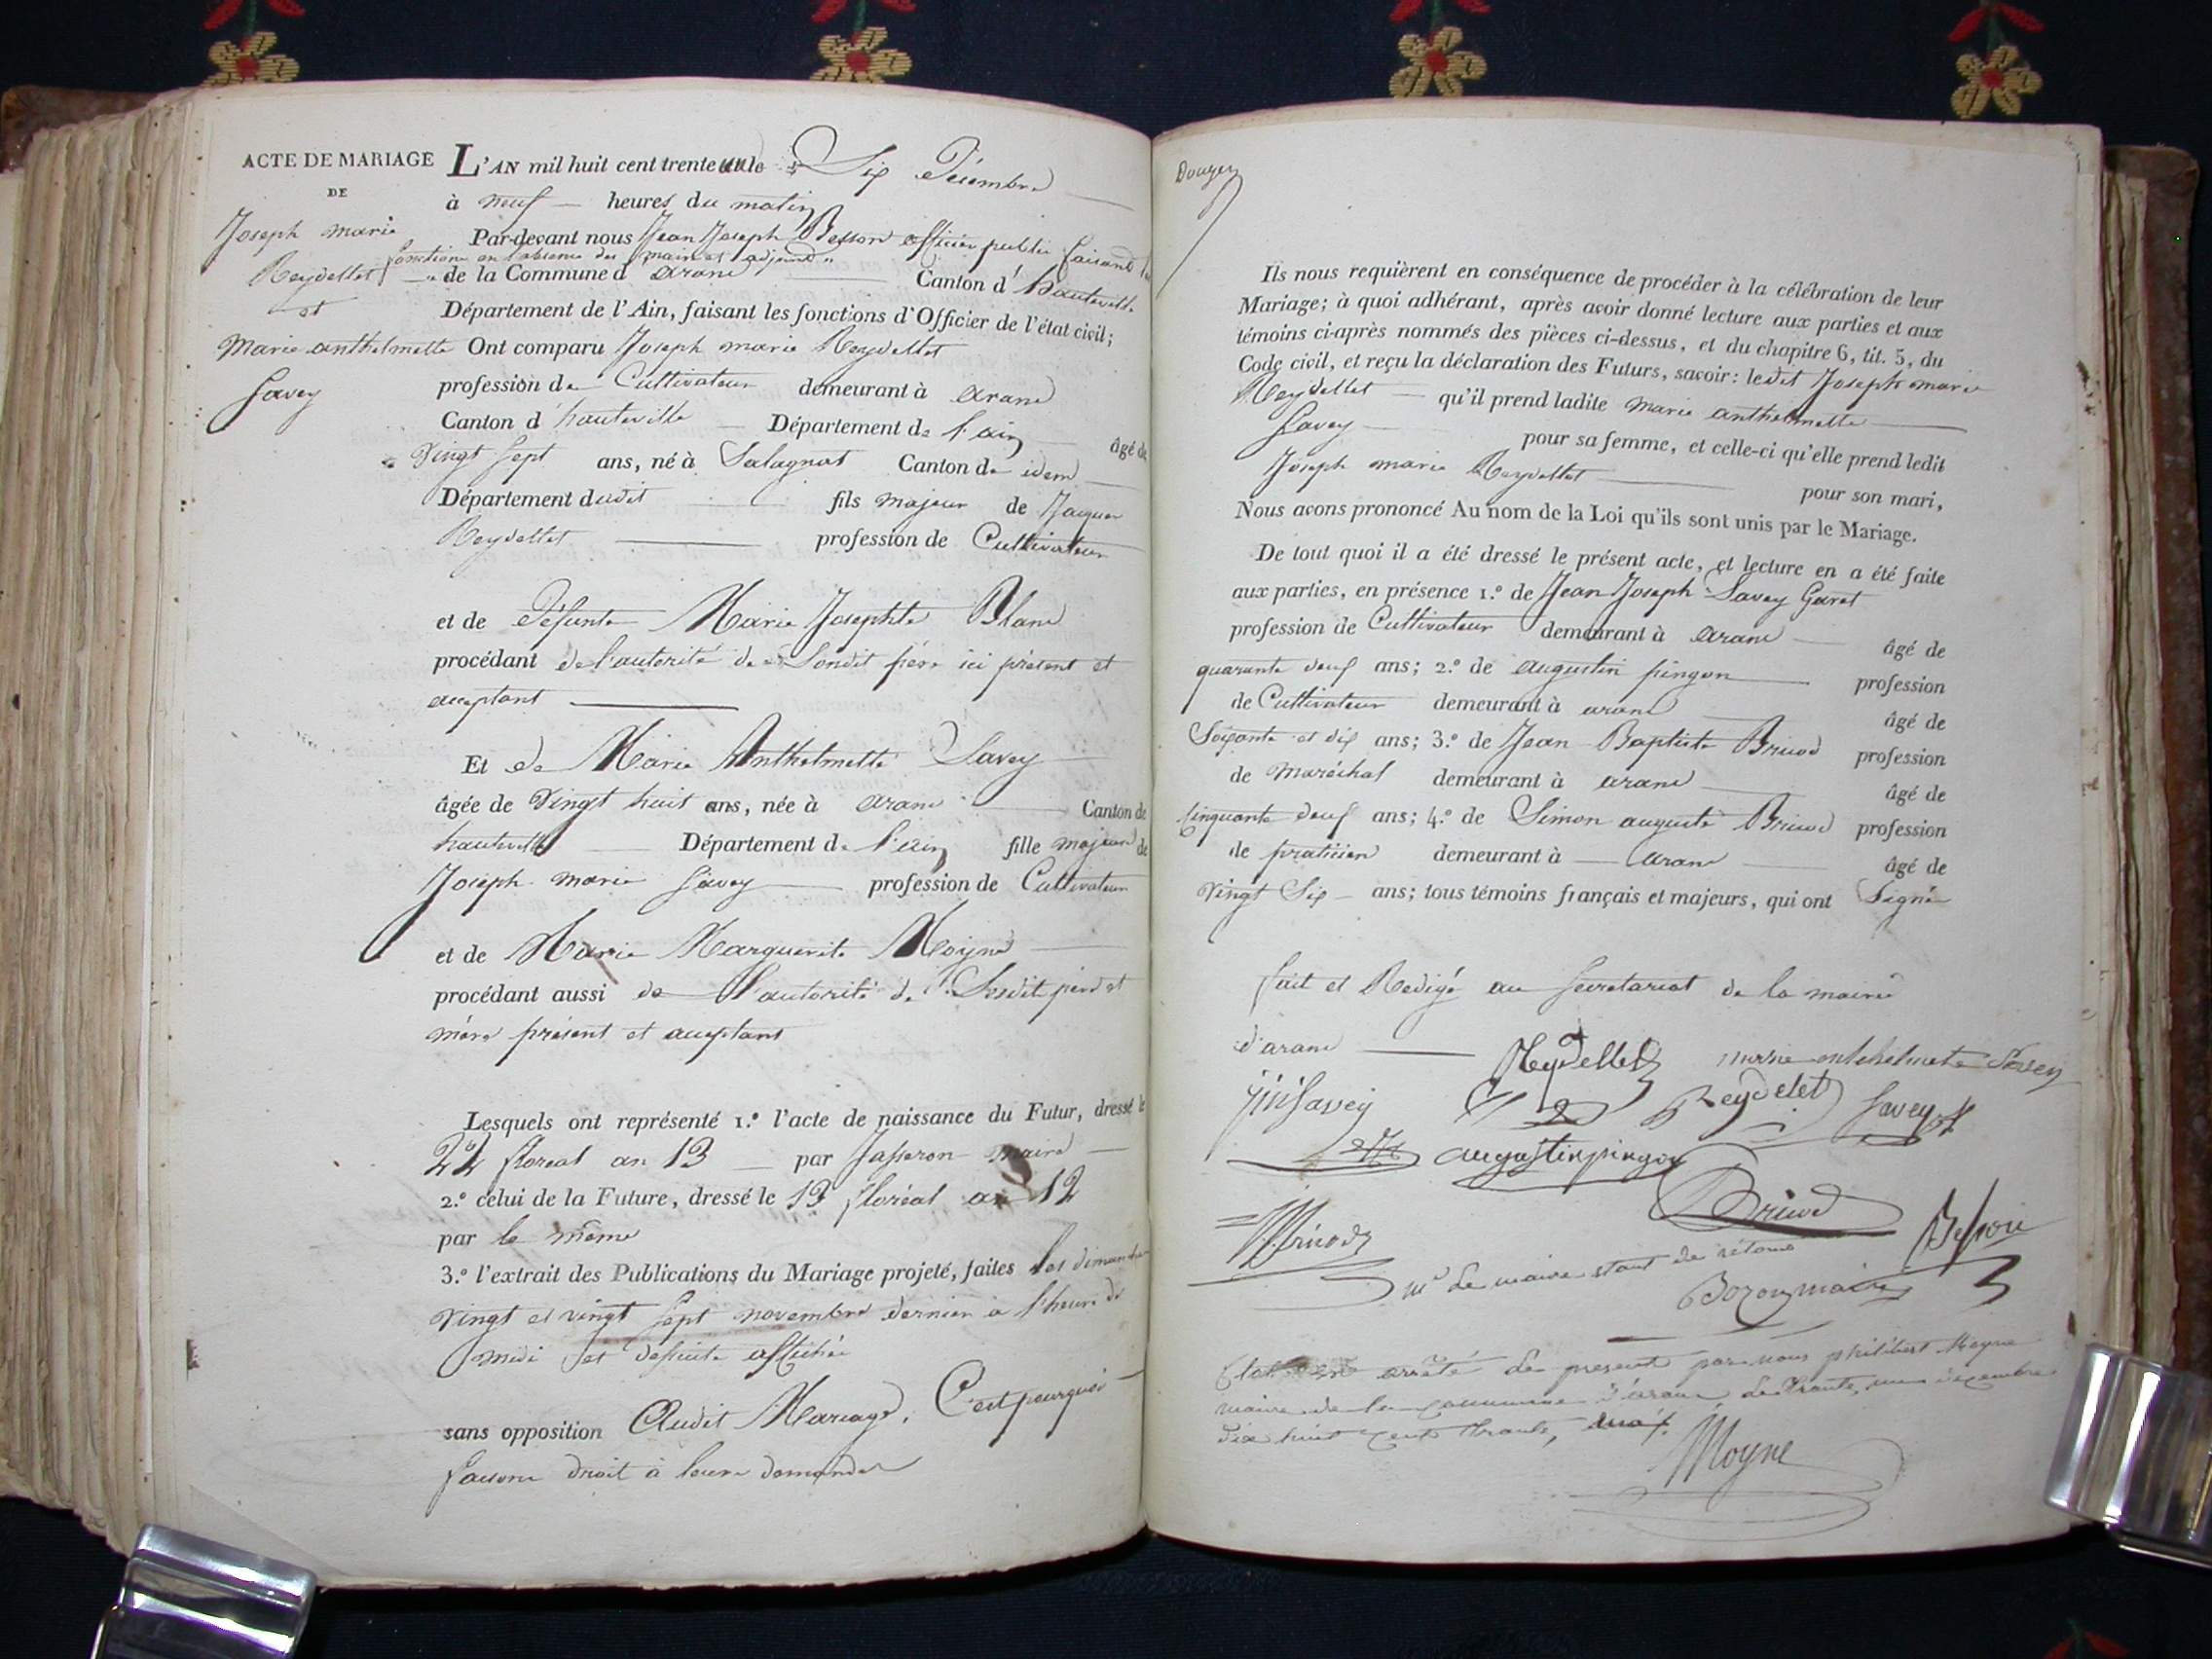 ACTE DE MARIAGE
DE
Joseph marie
Reydellet
et
Marie anthelmette
Savey
L'AN mil huit cent trente un le Six Décembre
à neuf heures du matin
Par-devant nous Jean Joseph Besson officier public faisant les
fonctions en l'absence des maire et adjoint
de la Commune d'arane Canton d'hauteville
Département de l'Ain, faisant les fonctions d'Officier de l'état civil;
Ont comparu Joseph marie Reydellet
profession de Cultivateur demeurant à arane
Canton d'hauteville Département de l'ain âgé de
Vingt Sept ans, né à Salagnat Canton de idem
Département dudit fils majeur de Jacques
Reydellet profession de Cultivateur
et de Défunte Marie Josephte Blanc
procédant de l'autorité de Sondit père ici présent et
acceptant
Et de Marie Anthelmette Savey
âgée de Vingt huit ans, née à arane Canton de
hauteville Département de l'ain fille majeure de
Joseph marie Savey profession de Cultivateur
et de Marie Marguerite Moyne
procédant aussi de l'autorité de Sesdit père et
mère présent et acceptant
Lesquels ont représenté 1.º l'acte de naissance du Futur, dressé le
22 floréal an 13 par Jasseron maire
2.º celui de la Future, dressé le 13 floréal an 12
par le même
3.º l'extrait des Publications du Mariage projeté, faites les dimanche
Vingt et vingt Sept novembre dernier à l'heure de
midi et desuite affichée
sans opposition Audit Mariage, C'est pourquoi
faisons droit à leurs demandes
Douzer
Ils nous requièrent en conséquence de procéder à la célébration de leur
Mariage; à quoi adhérant, après avoir donné lecture aux parties et aux
témoins ci-après nommés des pièces ci-dessus, et du chapitre 6, tit. 5, du
Code civil, et reçu la déclaration des Futurs, savoir: ledit Joseph marie
Reydellet qu'il prend ladite marie anthelmette
Savey pour sa femme, et celle-ci qu'elle prend ledit
Joseph marie Reydellet pour son mari,
Nous avons prononcé Au nom de la Loi qu'ils sont unis par le Mariage.
De tout quoi il a été dressé le présent acte, et lecture en a été faite
aux parties, en présence 1.º de Jean Joseph Savey Garet
profession de Cultivateur demeurant à arane âgé de
quarante deuf ans; 2.º de augustin pingon profession
de Cultivateur demeurant à arane âgé de
Soixante et dix ans; 3.º de Jean Baptiste Brucod profession
de Maréchal demeurant à arane âgé de
Cinquante deuf ans; 4.º de Simon auguste Brucod profession
de praticien demeurant à arane âgé de
Vingt Six ans; tous témoins français et majeurs, qui ont Signé
fait et Redigé au Secretariat de la mairie
d'arane
Reydellet marie
jjSavey Reydelet Savey
augustinpingon
Besson
Mr Le maire étant de retour
Bozon maire
arrêté le present par nous philibert Moyne
maire de la commune d'arane le trente un décembre
dix huit cent trente,
Moyne